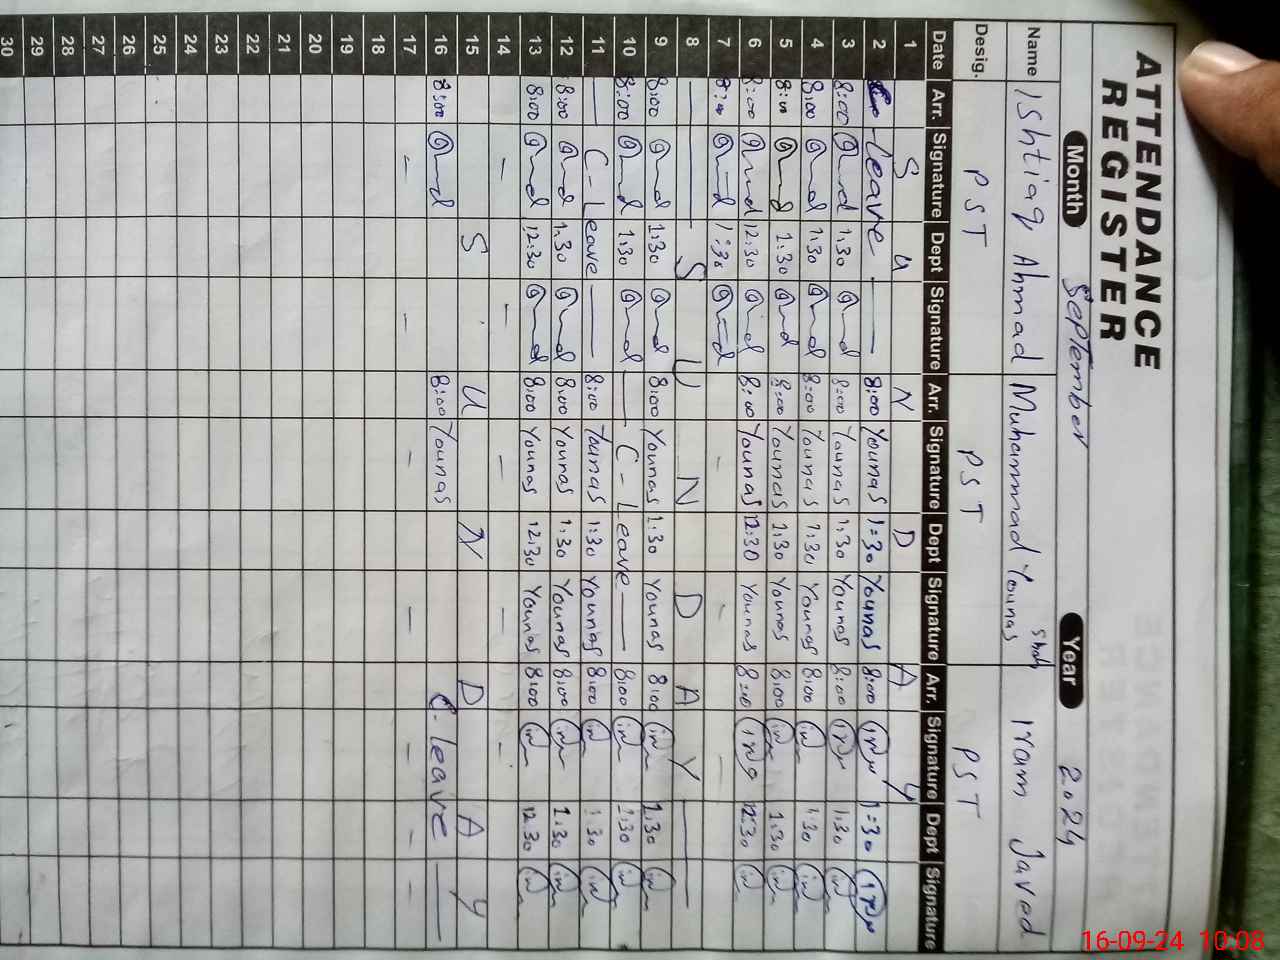 ATTENDANCE
REGISTER
Month September Year 2024
Name Ishtiaq Ahmad Muhammad Younas Shah Iram Javed
Desig. PST PST PST
Date Arr. Signature Dept Signature Arr. Signature Dept Signature Arr. Signature Dept Signature
1 S U N D A Y
2 Leave — 8:00 Younas 1:30 Younas 8:00 1:30
3 8:00 1:30 8:00 Younas 1:30 Younas 8:00 1:30
4 8:00 1:30 8:00 Younas 1:30 Younas 8:00 1:30
5 8:00 1:30 8:00 Younas 1:30 Younas 8:00 1:30
6 8:00 12:30 8:00 Younas 12:30 Younas 8:00 12:30
7 8:00 1:30 — — —
8 — S U N D A Y —
9 8:00 1:30 8:00 Younas 1:30 Younas 8:00 1:30
10 8:00 1:30 — C-Leave — 8:00 1:30
11 — C-Leave — 8:00 Younas 1:30 Younas 8:00 1:30
12 8:00 1:30 8:00 Younas 1:30 Younas 8:00 1:30
13 8:00 12:30 8:00 Younas 12:30 Younas 8:00 12:30
14 — — — — —
15 S U N D A Y
16 8:00 8:00 Younas C. leave —
17 — — — — — — —
18
19
20
21
22
23
24
25
26
27
28
29
30
16-09-24 10:08